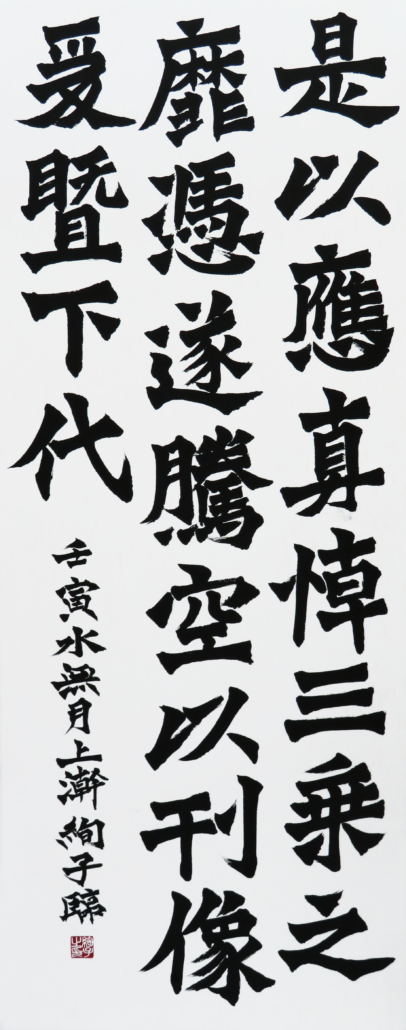 是以應真悼三乗之
靡憑遂騰空以刊像
爰暨下代
壬寅水無月上澣絢子臨